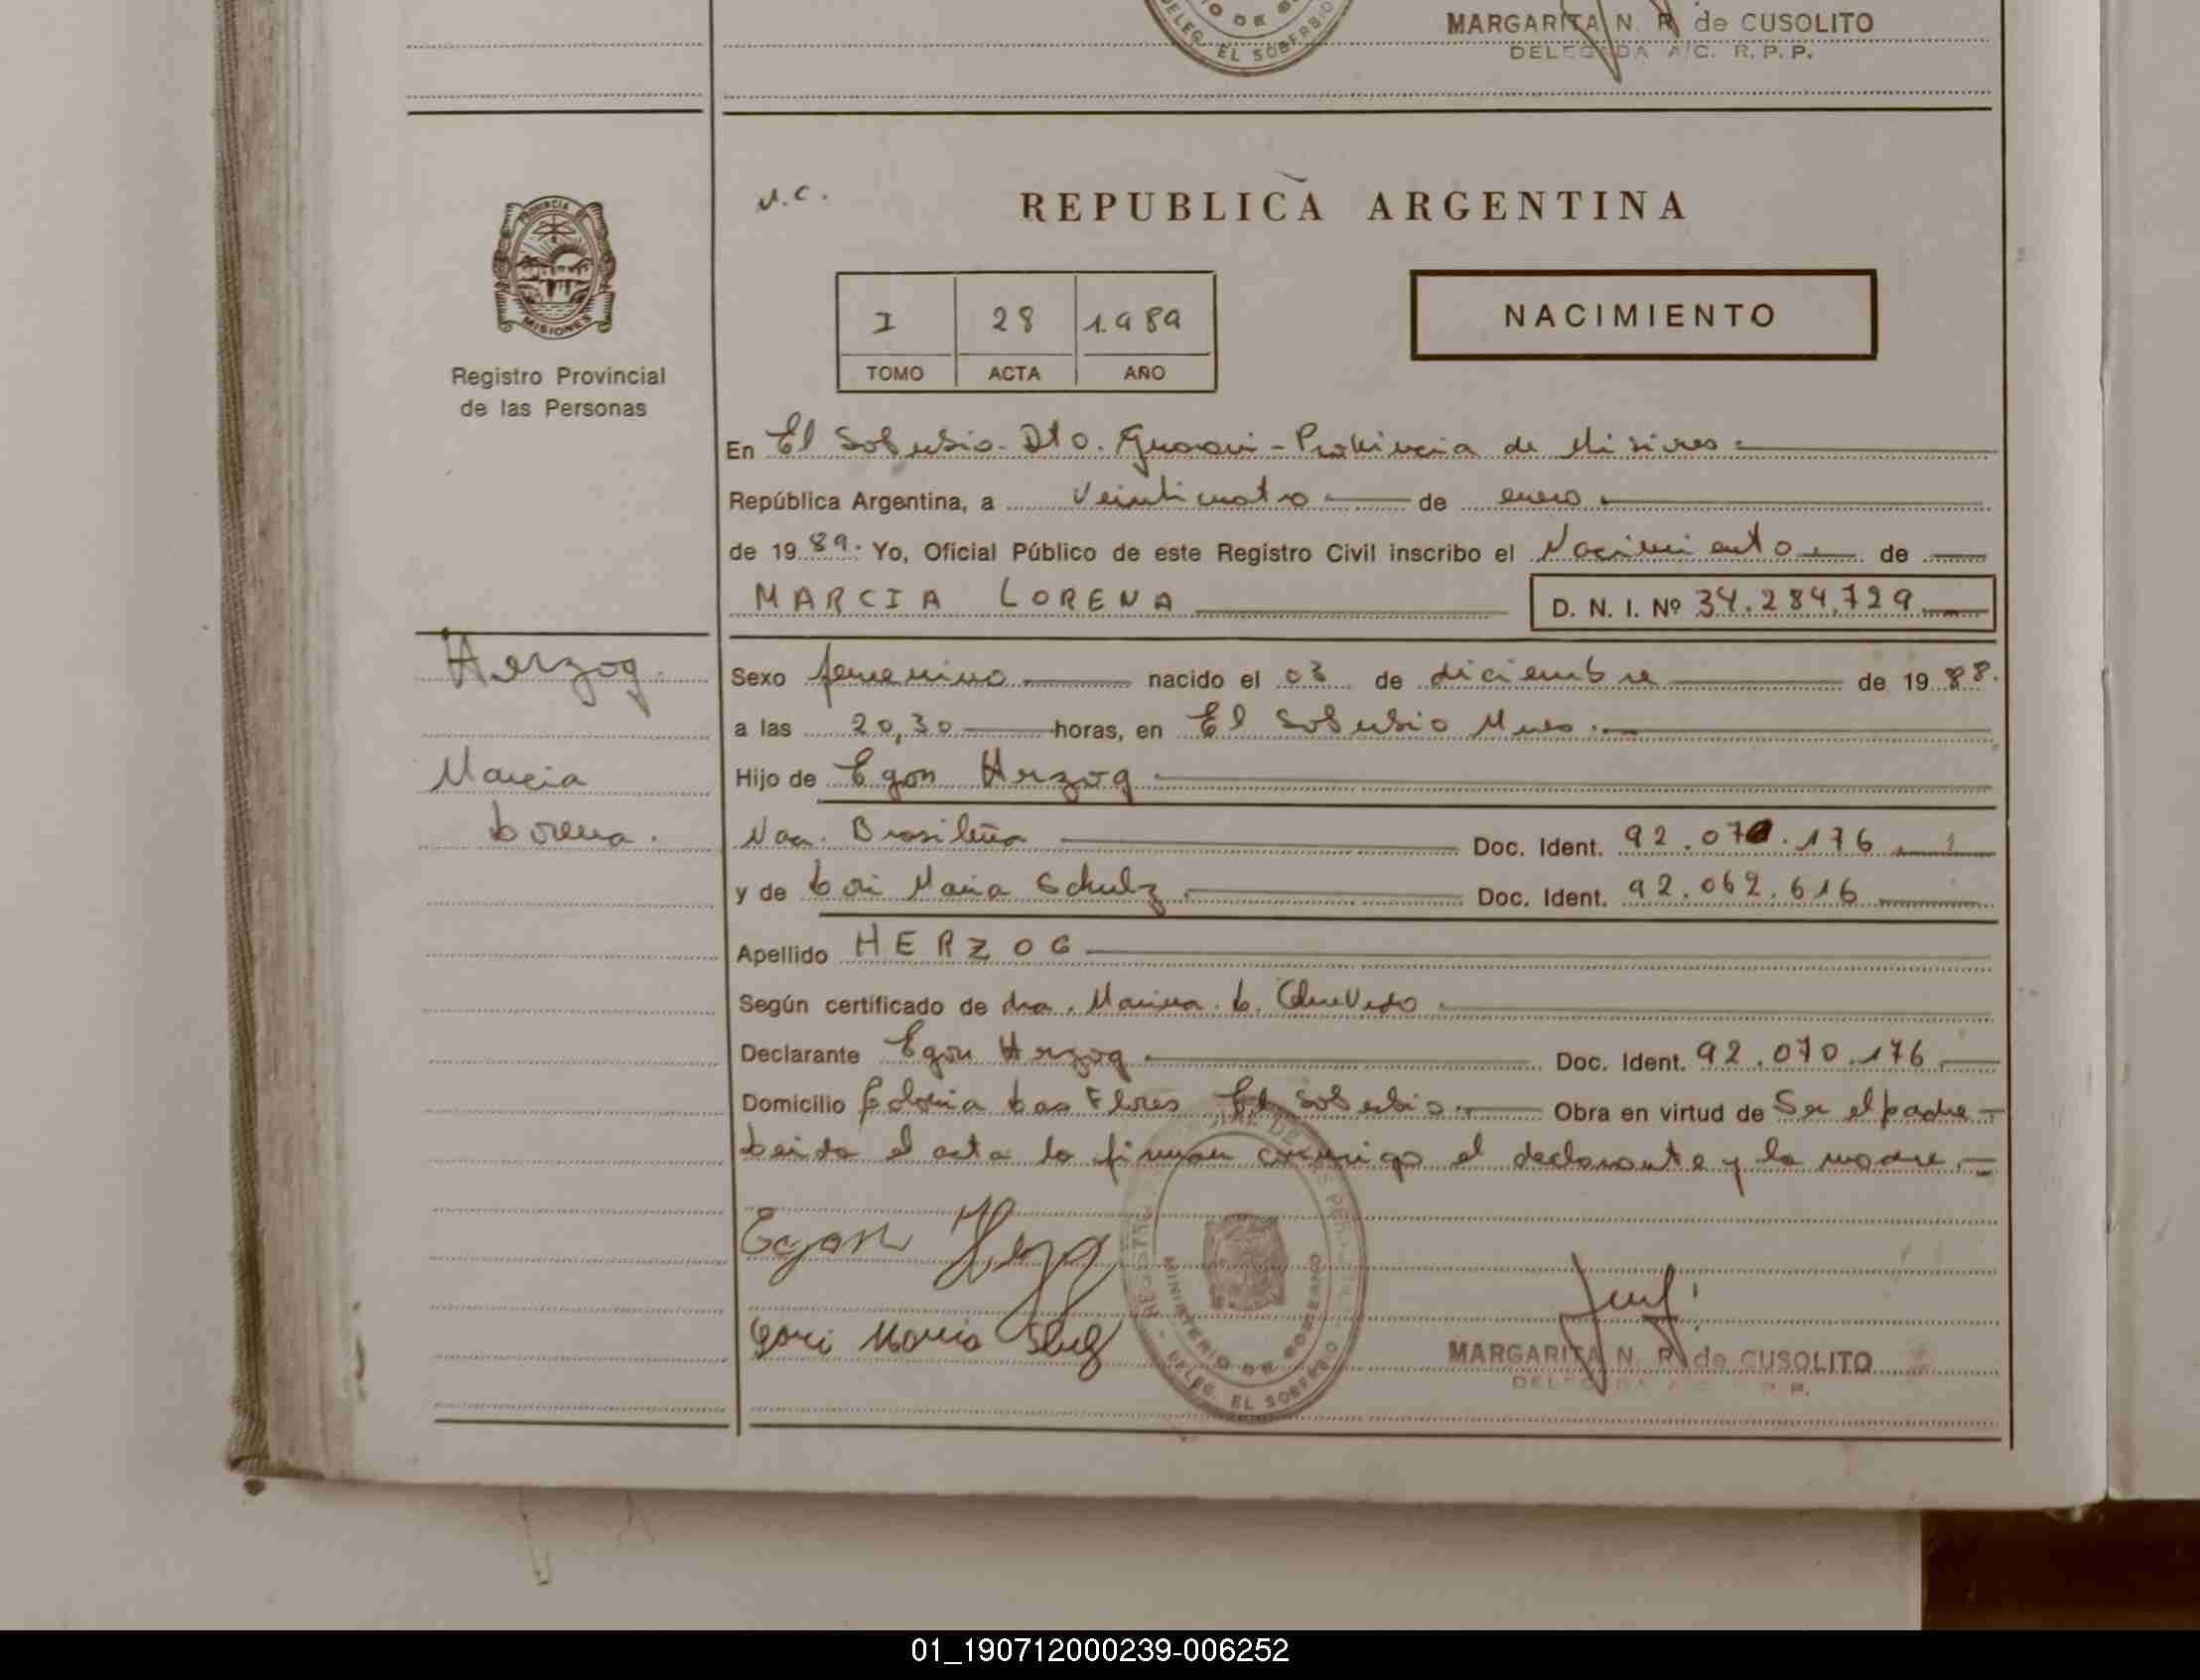 DELEG. EL SOBERBIO
MARGARITA N. R. de CUSOLITO
DELEGADA A/C. R. P. P.
PROVINCIA DE
MISIONES
Registro Provincial
de las Personas
N.C.
REPUBLICA ARGENTINA
I 28 1.989
TOMO ACTA AÑO
NACIMIENTO
En El Soberbio - Dto. Guarani - Provincia de Misiones
República Argentina, a veinticuatro de enero
de 1989. Yo, Oficial Público de este Registro Civil inscribo el Nacimiento de
MARCIA LORENA D. N. I. Nº 34.284.729
Herzog.
Marcia
Lorena.
Sexo femenino nacido el 03 de diciembre de 1988.
a las 20,30 horas, en El Soberbio Mnes.
Hijo de Egon Herzog
Nac. Brasileña Doc. Ident. 92.070.176
y de Lori Maria Schulz Doc. Ident. 92.062.616
Apellido HERZOG
Según certificado de dra. Marina L.
Declarante Egon Herzog Doc. Ident. 92.070.176
Domicilio Colonia Las Flores El Soberbio. Obra en virtud de Ser el padre
Leida el acta la firman conmigo el declarante y la madre.
Egon
Lori Maria
MINISTERIO DE GOBIERNO
DELEG. EL SOBERBIO
MARGARITA N. R. de CUSOLITO
DELEGADA A/C. R. P. P.
01_190712000239-006252